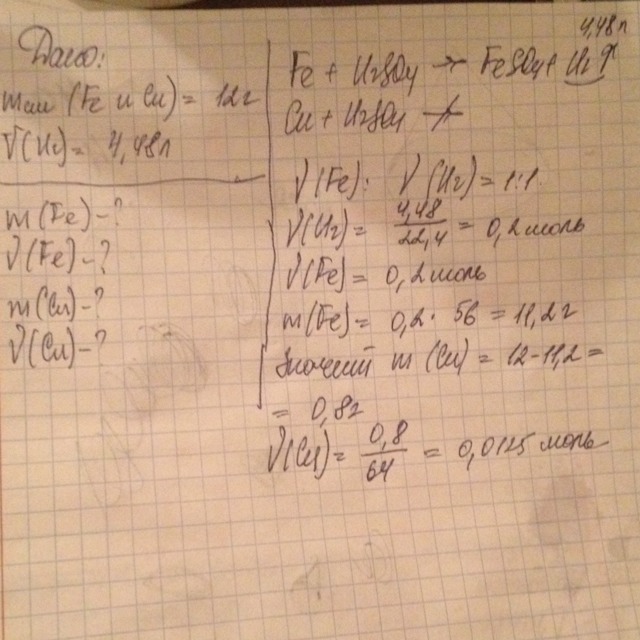 Дано:
mсм (Fe и Cu) = 12г
V(H2) = 4,48л
m(Fe) - ?
ν(Fe) - ?
m(Cu) - ?
ν(Cu) - ?
4,48л
Fe + H2SO4 → FeSO4 + H2↑
Cu + H2SO4 ↛
ν(Fe) : ν(H2) = 1:1
ν(H2) = 4,48/22,4 = 0,2 моль
ν(Fe) = 0,2 моль
m(Fe) = 0,2 · 56 = 11,2г
m(Cu) = 12-11,2 =
= 0,8г
ν(Cu) = 0,8/64 = 0,0125 моль